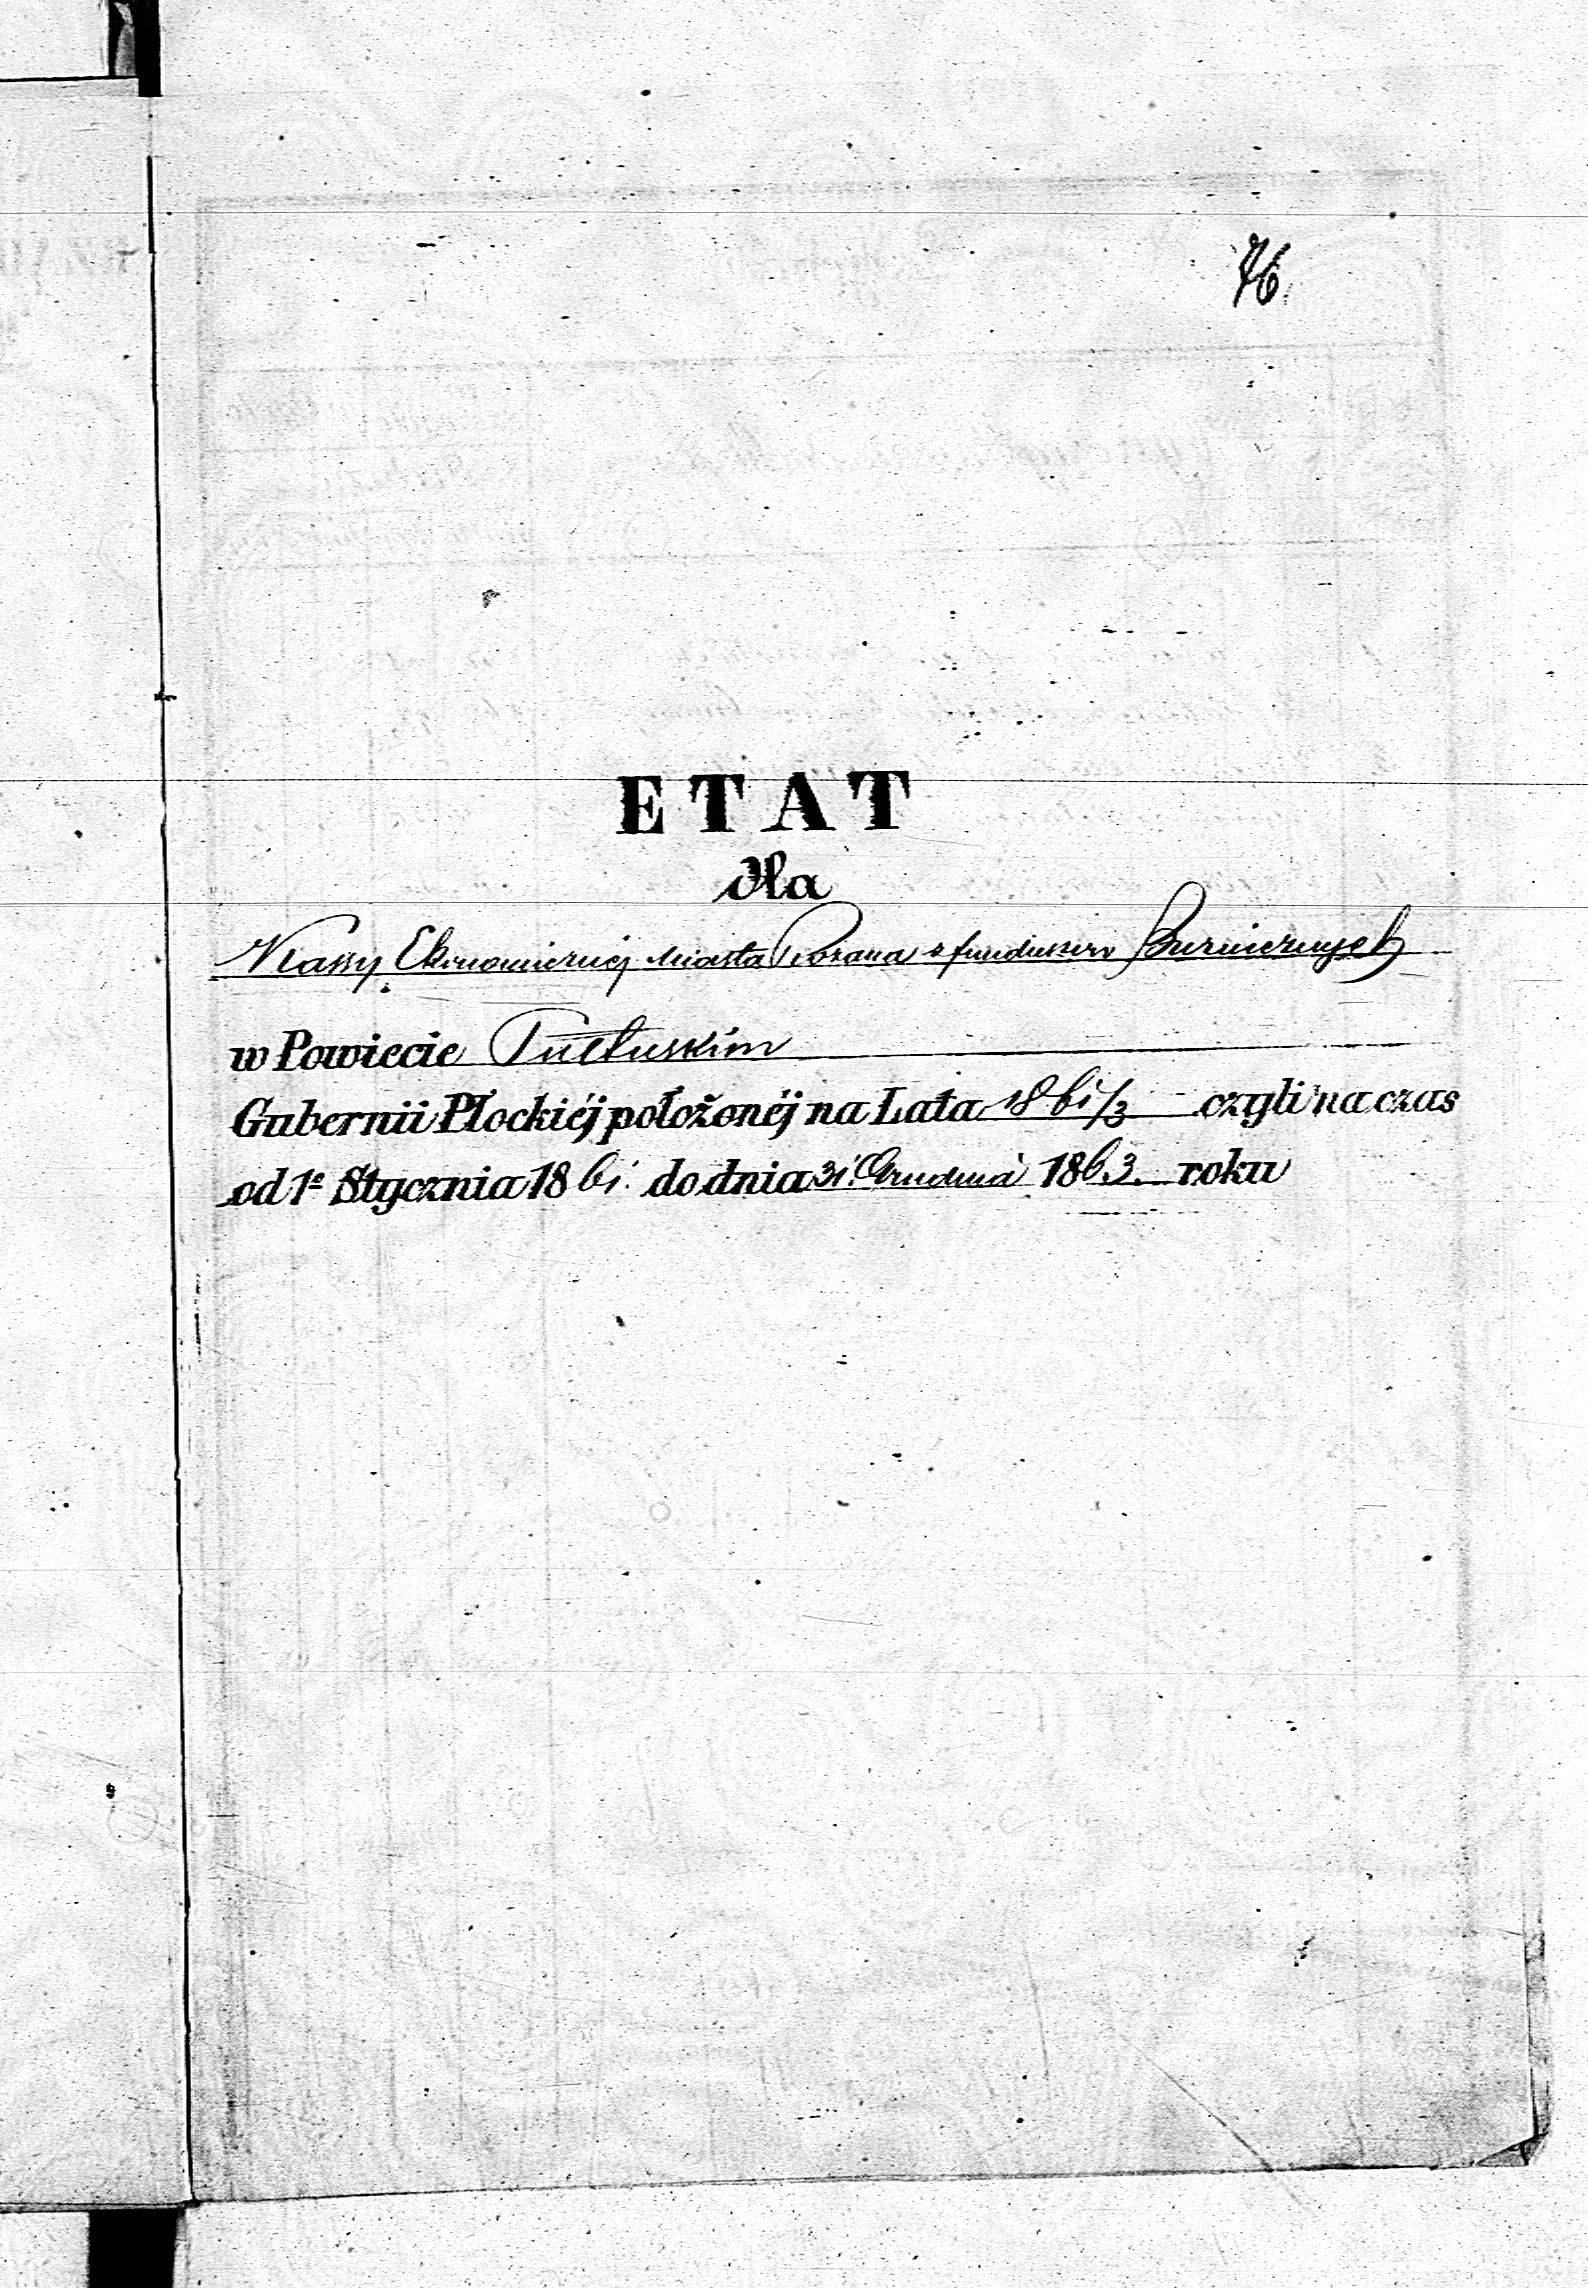 76.
ETAT
dla
Kassy Ekonomicznej Miasta Rożana z funduszow Bużnicznych
w Powiecie Pułtuskim
Gubernii Płockiéj położonéj na Lata 1861/3 czyli na czas
od 1º Stycznia 1861. do dnia 31. Grudnia 1863. roku